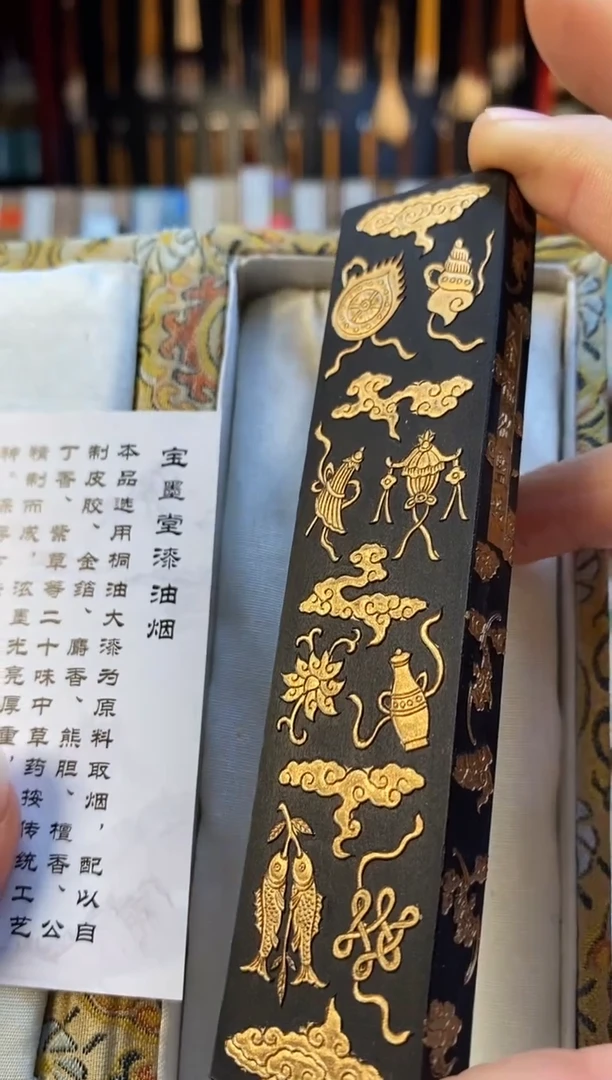 宝墨堂漆油烟
本品选用桐油大漆为原料取烟，配以自
制皮胶、金箔、麝香、熊胆、檀香、公
丁香、紫草等二十味中草药按传统工艺
精制而成，浓墨光亮厚重，